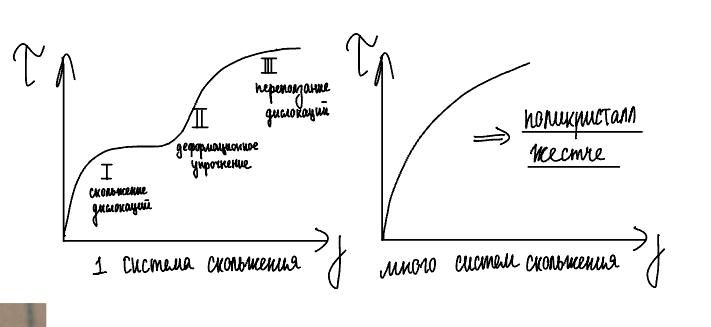 τ
I
скольжение
дислокаций
II
деформационное
упрочнение
III
переползание
дислокаций
1 система скольжения
γ
τ
⇒ поликристалл
жестче
много систем скольжения
γ